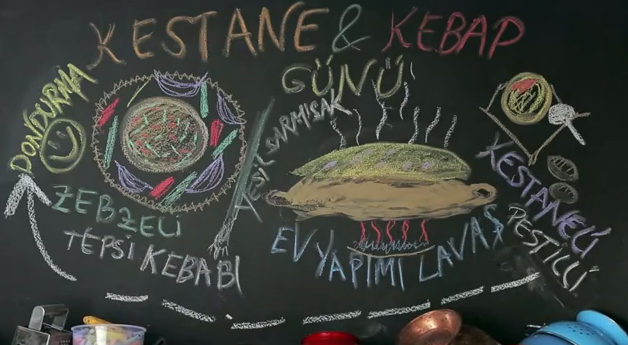 KESTANE & KEBAP
GÜNÜ
DONDURMA
ZEBZELİ
TEPSİ KEBABI
YEŞİL SARMISAK
EV YAPIMI LAVAŞ
KESTANELİ
PESTİLLİ